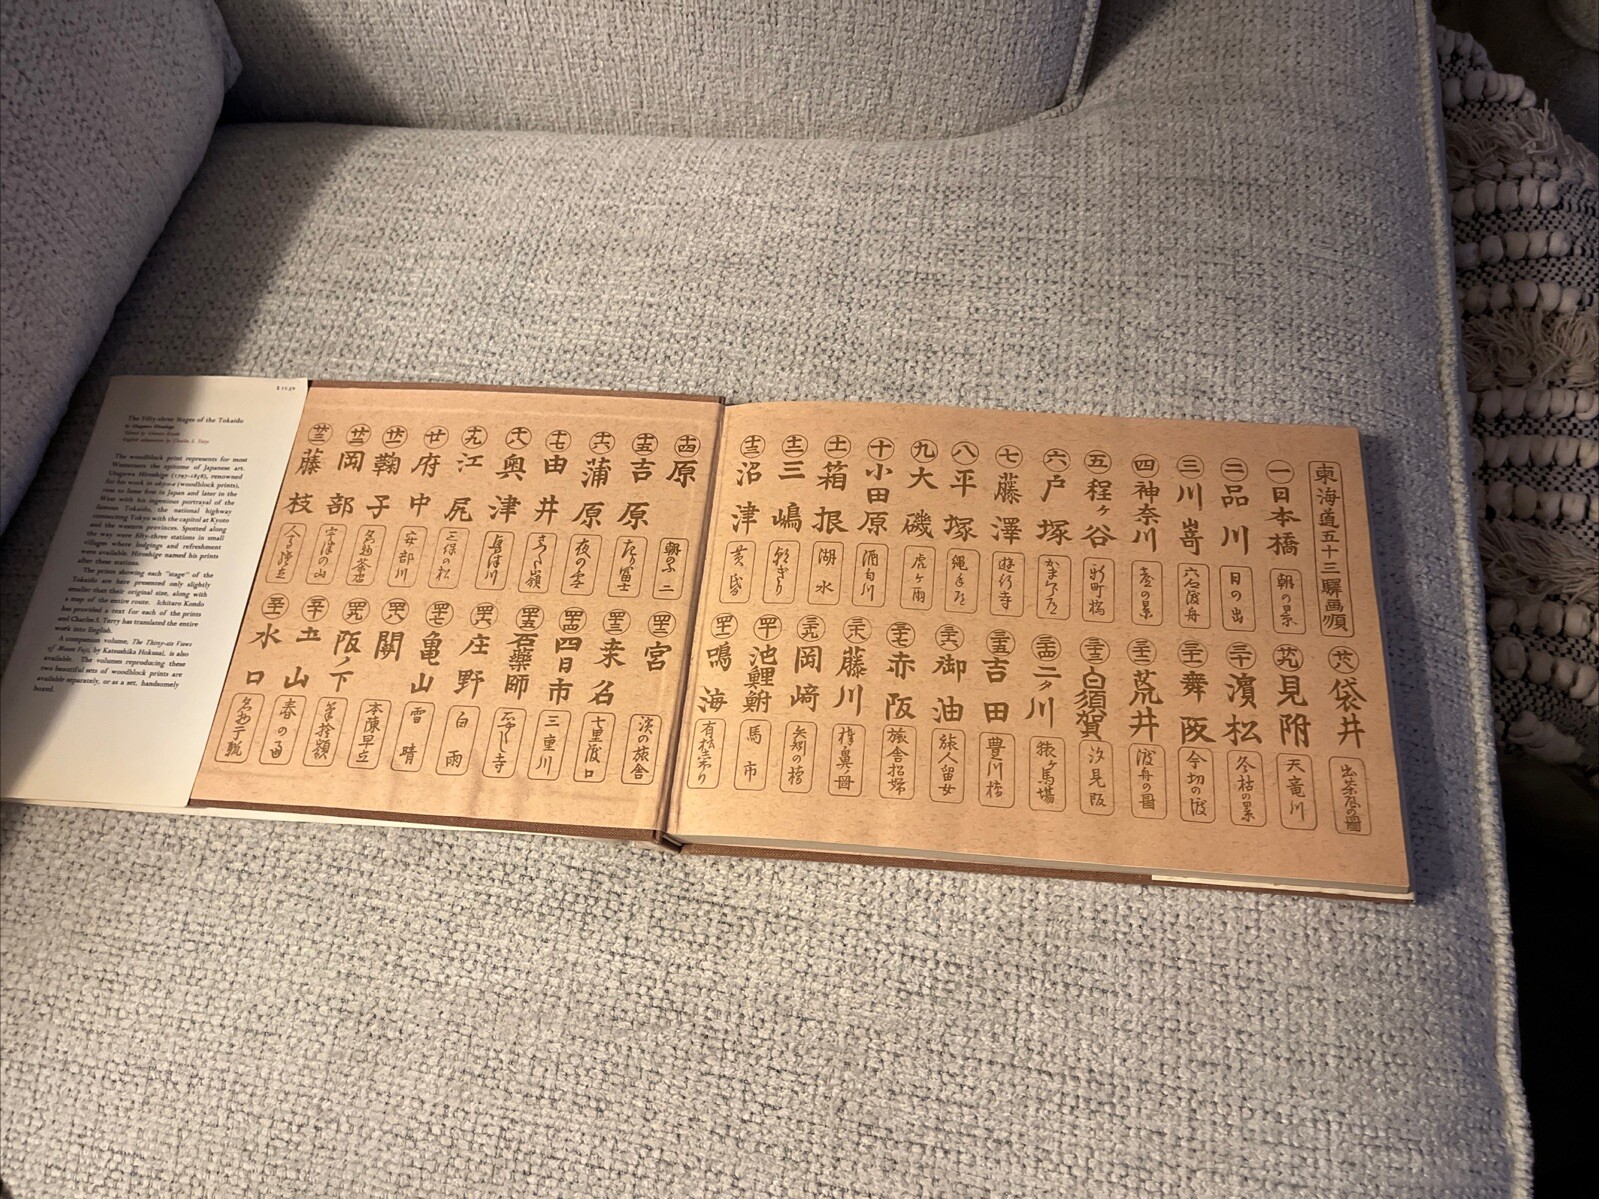 $ 12.50
The Fifty-three Stages of the Tokaido
by Utagawa Hiroshige
Edited by Ichitaro Kondo
English adaptation by Charles S. Terry
The woodblock print represents for most
Westerners the epitome of Japanese art.
Utagawa Hiroshige (1797-1858), renowned
for his work in ukiyo-e (woodblock prints),
rose to fame first in Japan and later in the
West with his ingenious portrayal of the
famous Tokaido, the national highway
connecting Tokyo with the capitol at Kyoto
and the western provinces. Spotted along
the way were fifty-three stations in small
villages where lodgings and refreshment
were available. Hiroshige named his prints
after these stations.
The prints showing each "stage" of the
Tokaido are here presented only slightly
smaller than their original size, along with
a map of the entire route. Ichitaro Kondo
has provided a text for each of the prints
and Charles S. Terry has translated the entire
work into English.
A companion volume, The Thirty-six Views
of Mount Fuji, by Katsushika Hokusai, is also
available. The volumes reproducing these
two beautiful sets of woodblock prints are
available separately, or as a set, handsomely
boxed.
東海道五十三驛画順
一 日本橋 朝の景
二 品川 日の出
三 川嵜 六合渡舟
四 神奈川 臺の景
五 程ヶ谷 新町橋
六 戸塚
七 藤澤 遊行寺
八 平塚 縄手道
九 大磯 虎ヶ雨
十 小田原 酒匂川
十一 箱根 湖水
十二 三嶋 朝ぎり
十三 沼津 黄昏
十四 原 朝のふ二
十五 吉原 左り富士
十六 蒲原 夜の雪
十七 由井 さつた嶺
十八 奥津 興津川
十九 江尻 三保の松
廿 府中 安部川
廿一 鞠子 名物茶店
廿二 岡部 宇津の山
廿三 藤枝
廿八 袋井 出茶屋の圖
廿九 見附 天竜川
三十 濱松 冬枯の景
三十一 舞阪 今切の渡
三十二 荒井 渡舟の圖
三十三 白須賀 汐見阪
三十四 二タ川 猿ヶ馬場
三十五 吉田 豊川橋
三十六 御油 旅人留女
三十七 赤阪 旅舎招婦
三十八 藤川 棒鼻ノ圖
三十九 岡崎 矢矧の橋
四十 池鯉鮒 馬市
四十一 鳴海 有松しぼり
四十二 宮 濱の旅舎
四十三 桒名 七里渡口
四十四 四日市 三重川
四十五 石藥師 石やくし寺
四十六 庄野 白雨
四十七 亀山 雪晴
四十八 關 本陳早立
四十九 阪ノ下 筆捨嶺
五十 土山 春の雨
五十一 水口 名物干瓢